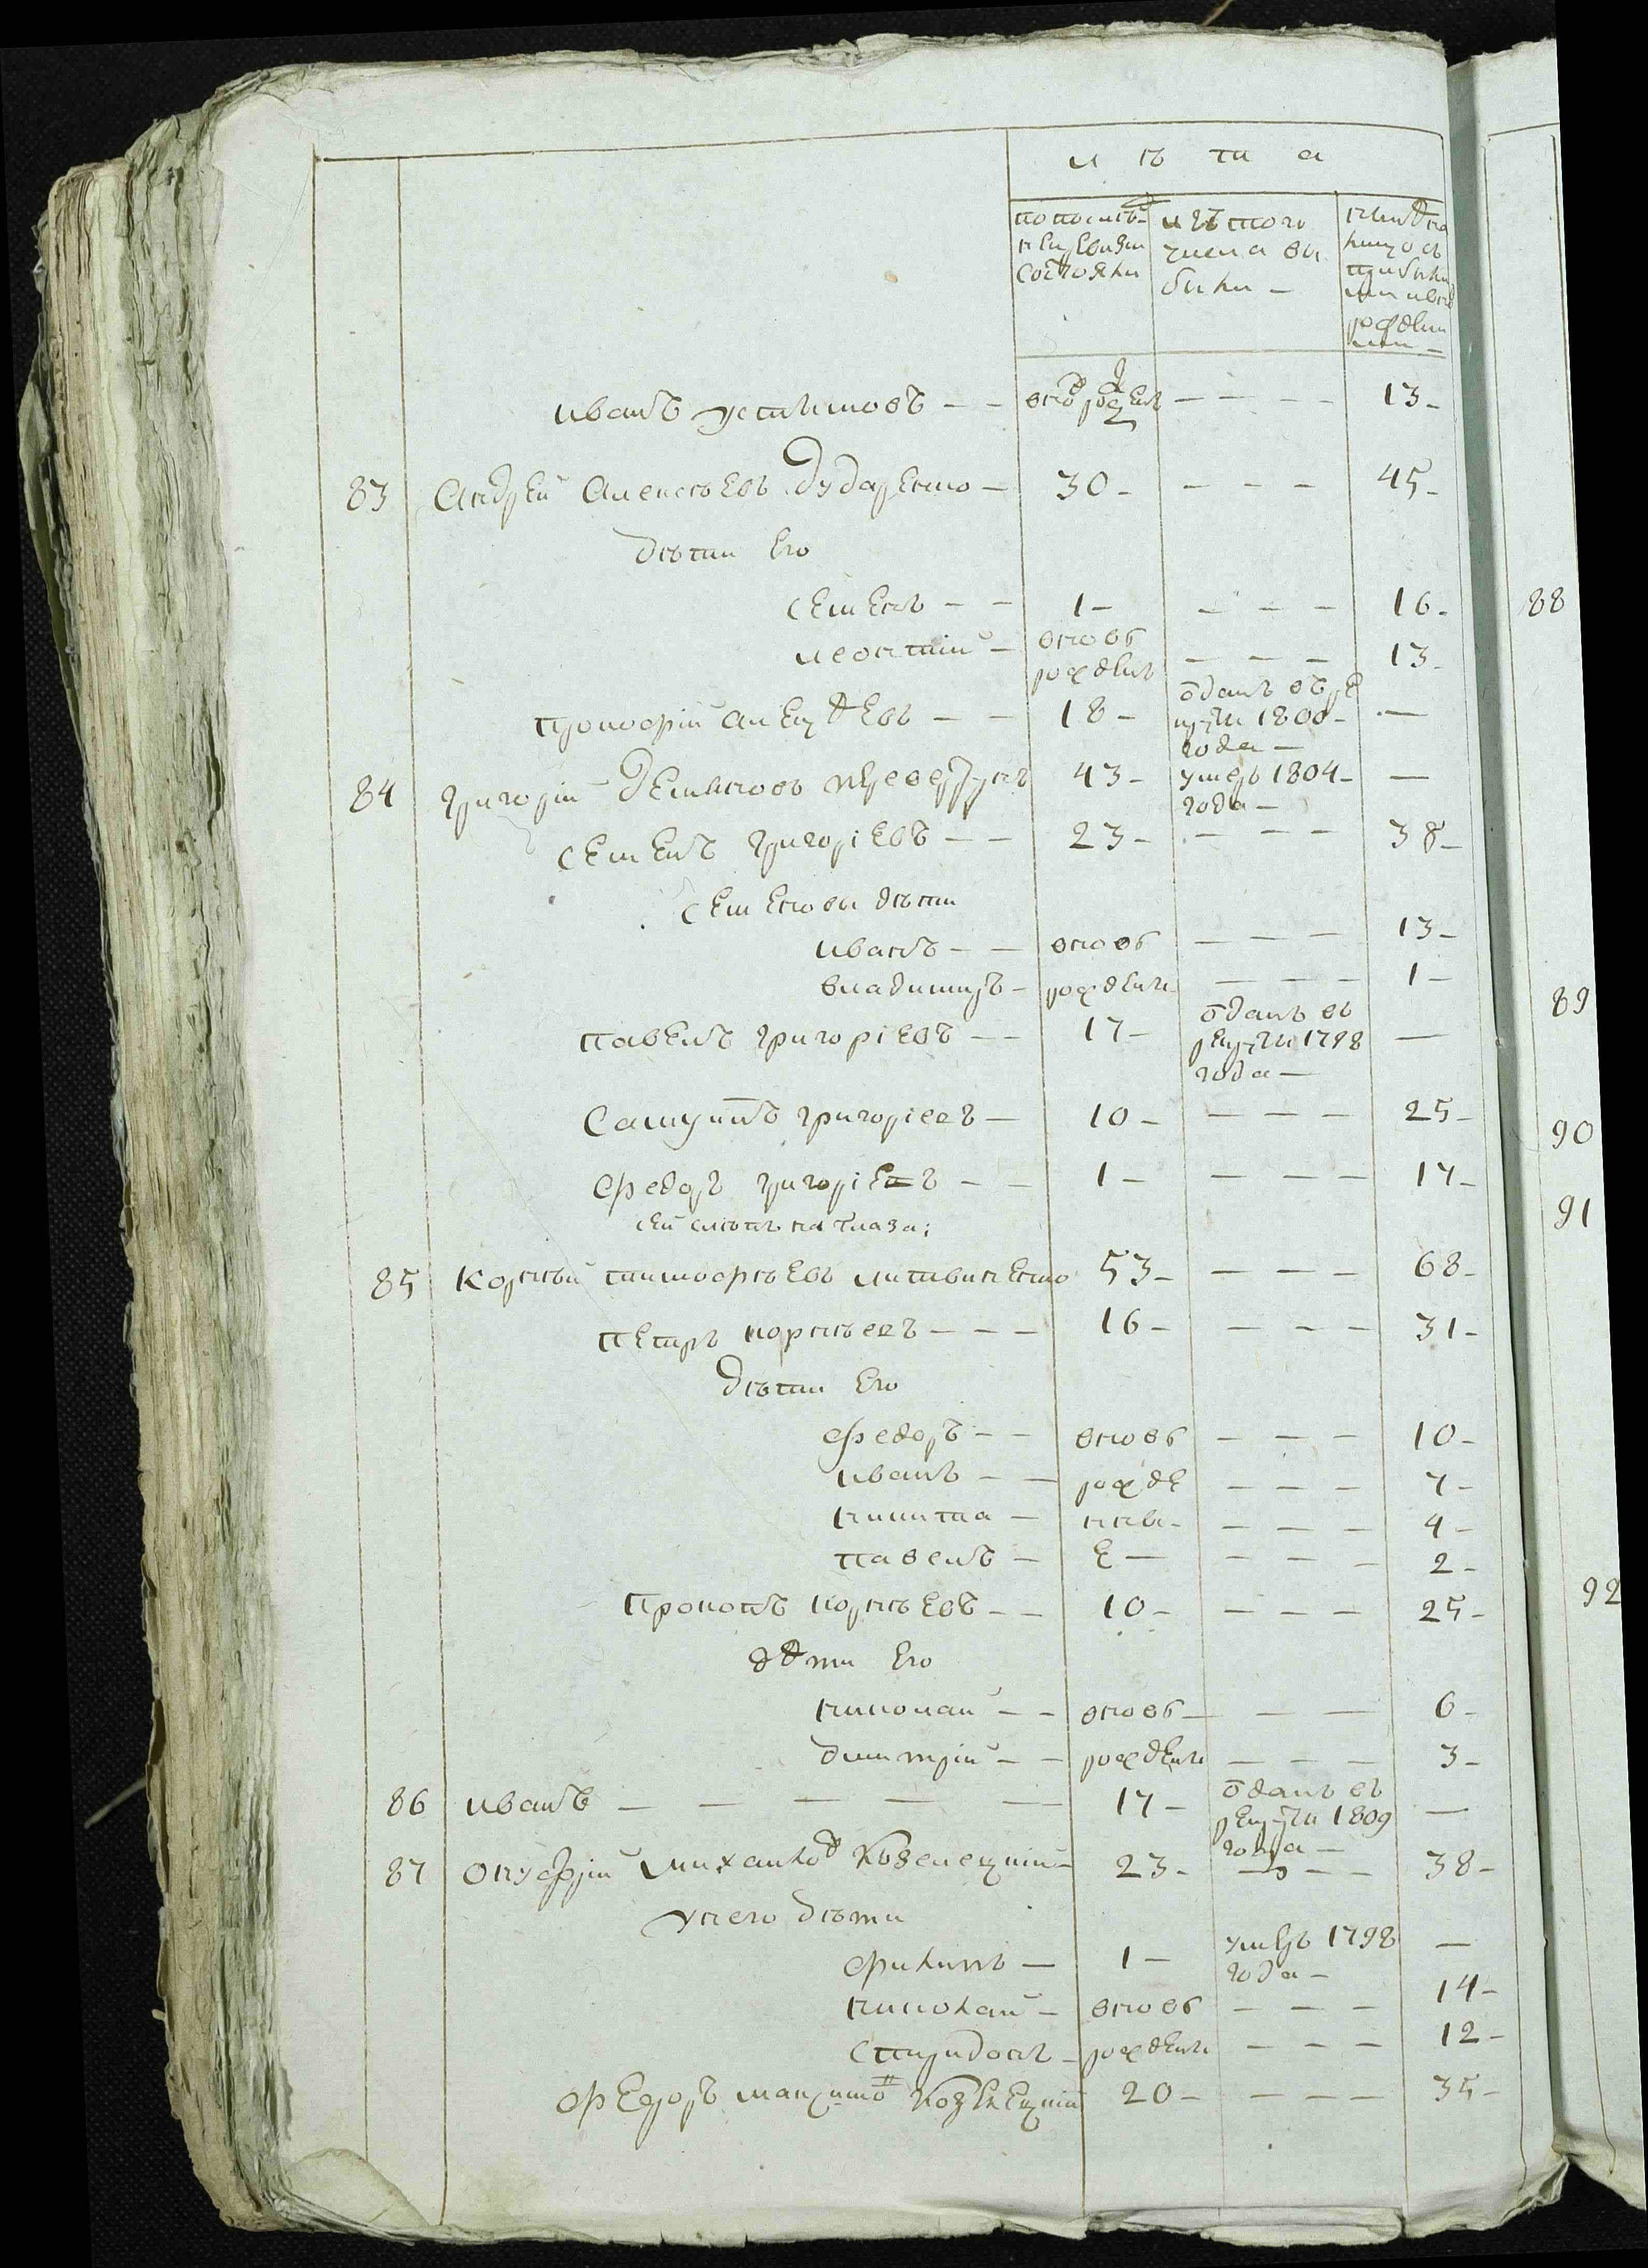 лѣта
по послѣд-
ней ревизіи
состояли
изъ того
числа вы
были —
нынѣ на
лицо съ
прибылы
ми и внов
рожден
ными —
иванъ устимовъ — — вно рожденъ — — — — 13 -
83 Андрей Алексѣевъ Дударенко — 30 - — — — 45 -
дѣти Его
семенъ — — 1 - — — — 16 -
леонтій — вновь рожденъ — — — 13 -
прокофій андреевъ — — 18 - отданъ въ рекруты 1800 - года — —
84 григорій демяновъ 43 - умеръ 1804 - года — —
семенъ григоріевъ — — 23 - — — — 38 -
семеновы дѣти
иванъ — — вновь — — — 13 -
владимиръ — рождены — — — 1 -
павелъ григоріевъ — — 17 - отданъ въ рекруты 1798 года — —
Самуилъ григоріевъ — 10 - — — — 25 -
федоръ григоріевъ — — 1 - — — — 17 -
сей слѣпъ на глаза;
85 Корнѣй тимофѣевъ литвиненко 53 - — — — 68 -
петръ корнѣевъ — — — 16 - — — — 31 -
дѣти Его
федоръ — — вновь — — — 10 -
иванъ — — рожде — — — 7 -
никита — нны - — — — 4 -
павелъ — е — — — — 2 -
прокопъ корнѣевъ — — 10 - — — — 25 -
дѣти Его
николай — — вновь — — — 6 -
дмитрій — — рождены — — — 3 -
86 иванъ — — — — — 17 - отданъ въ рекруты 1809 года — —
87 онуфрій михайло козелецкій — 23 - — — — 38 -
унего дѣти
филипъ — 1 — умеръ 1798 года — —
николай — вновь — — — 14 -
спиридонъ — рождены — — — 12 -
федоръ козелецкій 20 - — — — 35 -
88
89
90
91
92